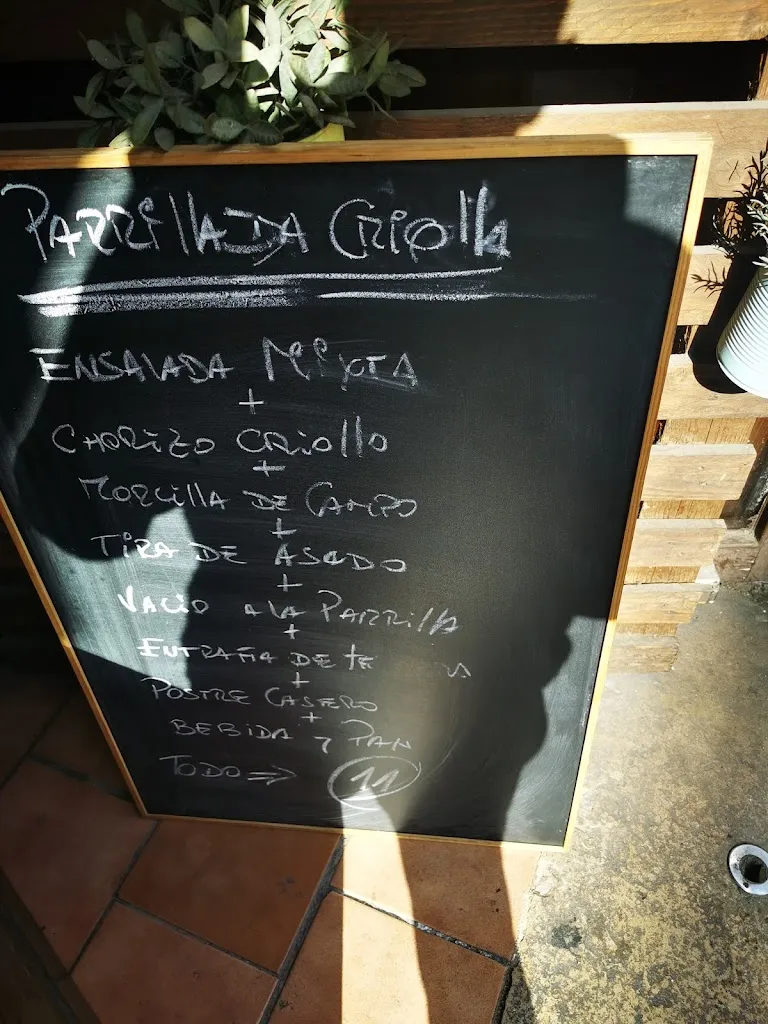 PARRILLADA CRIOLLA
ENSALADA MIXTA
+
CHORIZO CRIOLLO
+
MORCILLA DE CAMPO
+
TIRA DE ASADO
+
VACIO A LA PARRILLA
+
ENTRAÑA DE
+
POSTRE CASERO
+
BEBIDA Y PAN
TODO ⇒ 11